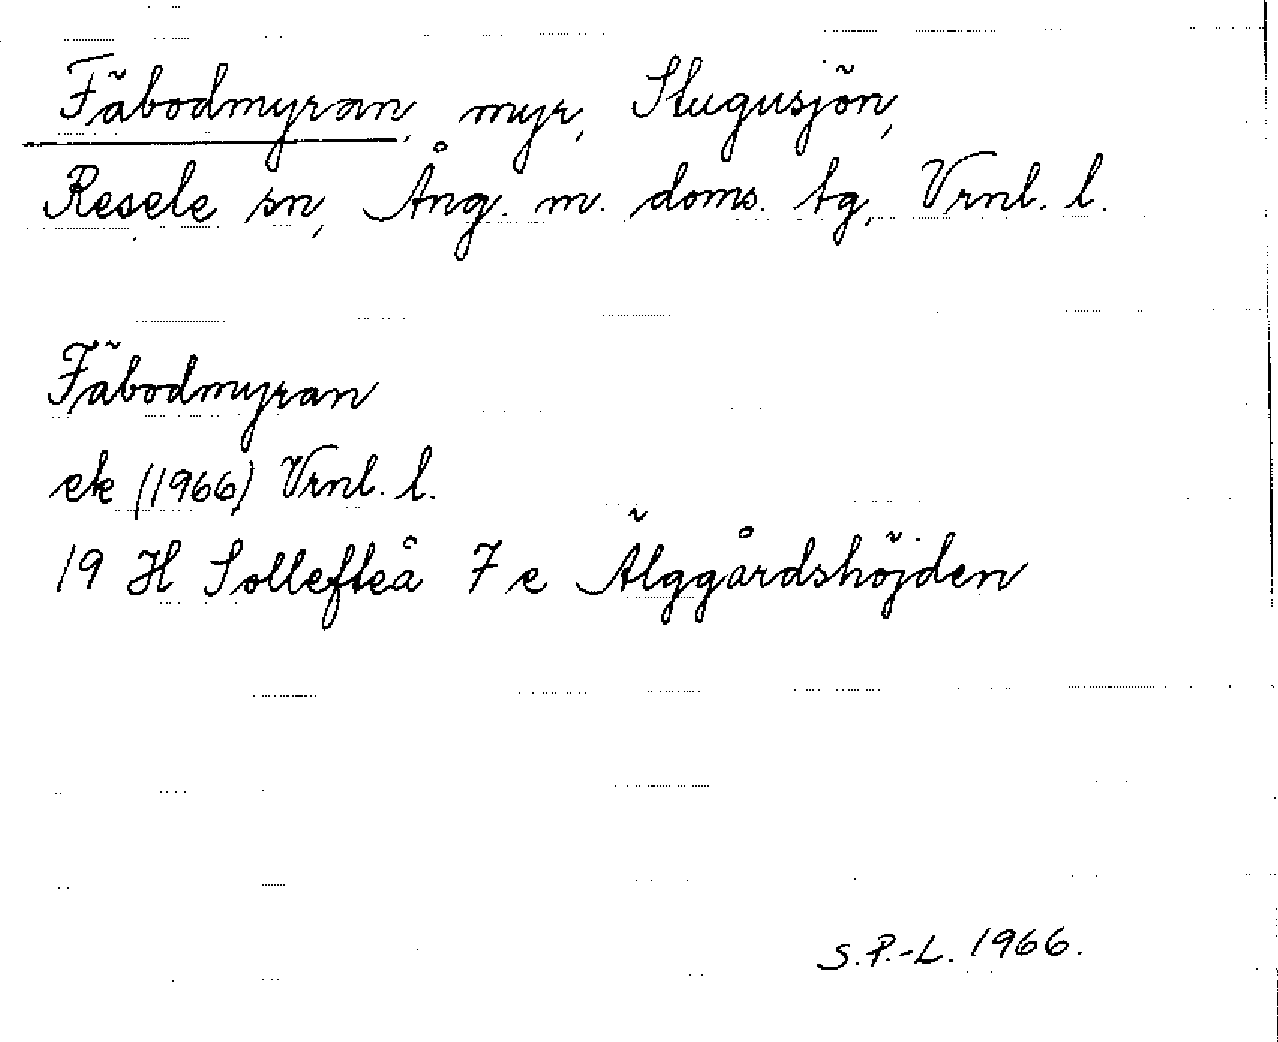 Fäbodmyran, myr, Stugusjön,
Resele sn, Ång. m. doms. tg, Vrnl. l.
Fäbodmyran
ek (1966) Vrnl. l.
19 H Sollefteå 7 e Älggårdshöjden
S.P.-L. 1966.